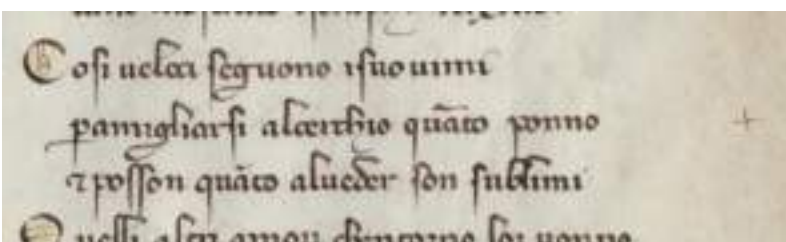 Cosi ueloci seguono isuo uimi
p asimigliarsi alcinthio quāto ponno
⁊ posson quāto alueder son sublimi
Quelli altri amori chentorno loz uonno